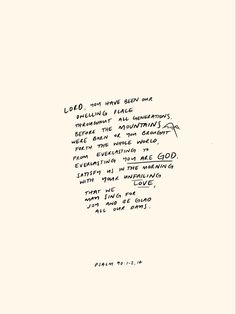 LORD, YOU HAVE BEEN OUR
DWELLING PLACE
THROUGHOUT ALL GENERATIONS.
BEFORE THE MOUNTAINS
WERE BORN OR YOU BROUGHT
FORTH THE WHOLE WORLD,
FROM EVERLASTING TO
EVERLASTING YOU ARE GOD.
SATISFY US IN THE MORNING
WITH YOUR UNFAILING
LOVE,
THAT WE
MAY SING FOR
JOY AND BE GLAD
ALL OUR DAYS.
PSALM 90:1-2, 14